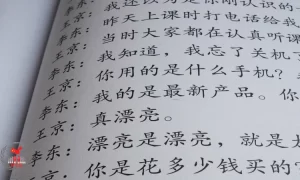 我还以为是你刚认识的
李东：昨天上课时打电话给我
王京：当时大家都在认真听课
李东：我知道，我忘了关机了
王京：你用的是什么手机？
李东：我的是最新产品。你
王京：真漂亮。
李东：漂亮是漂亮，就是太
王京：你是花多少钱买的